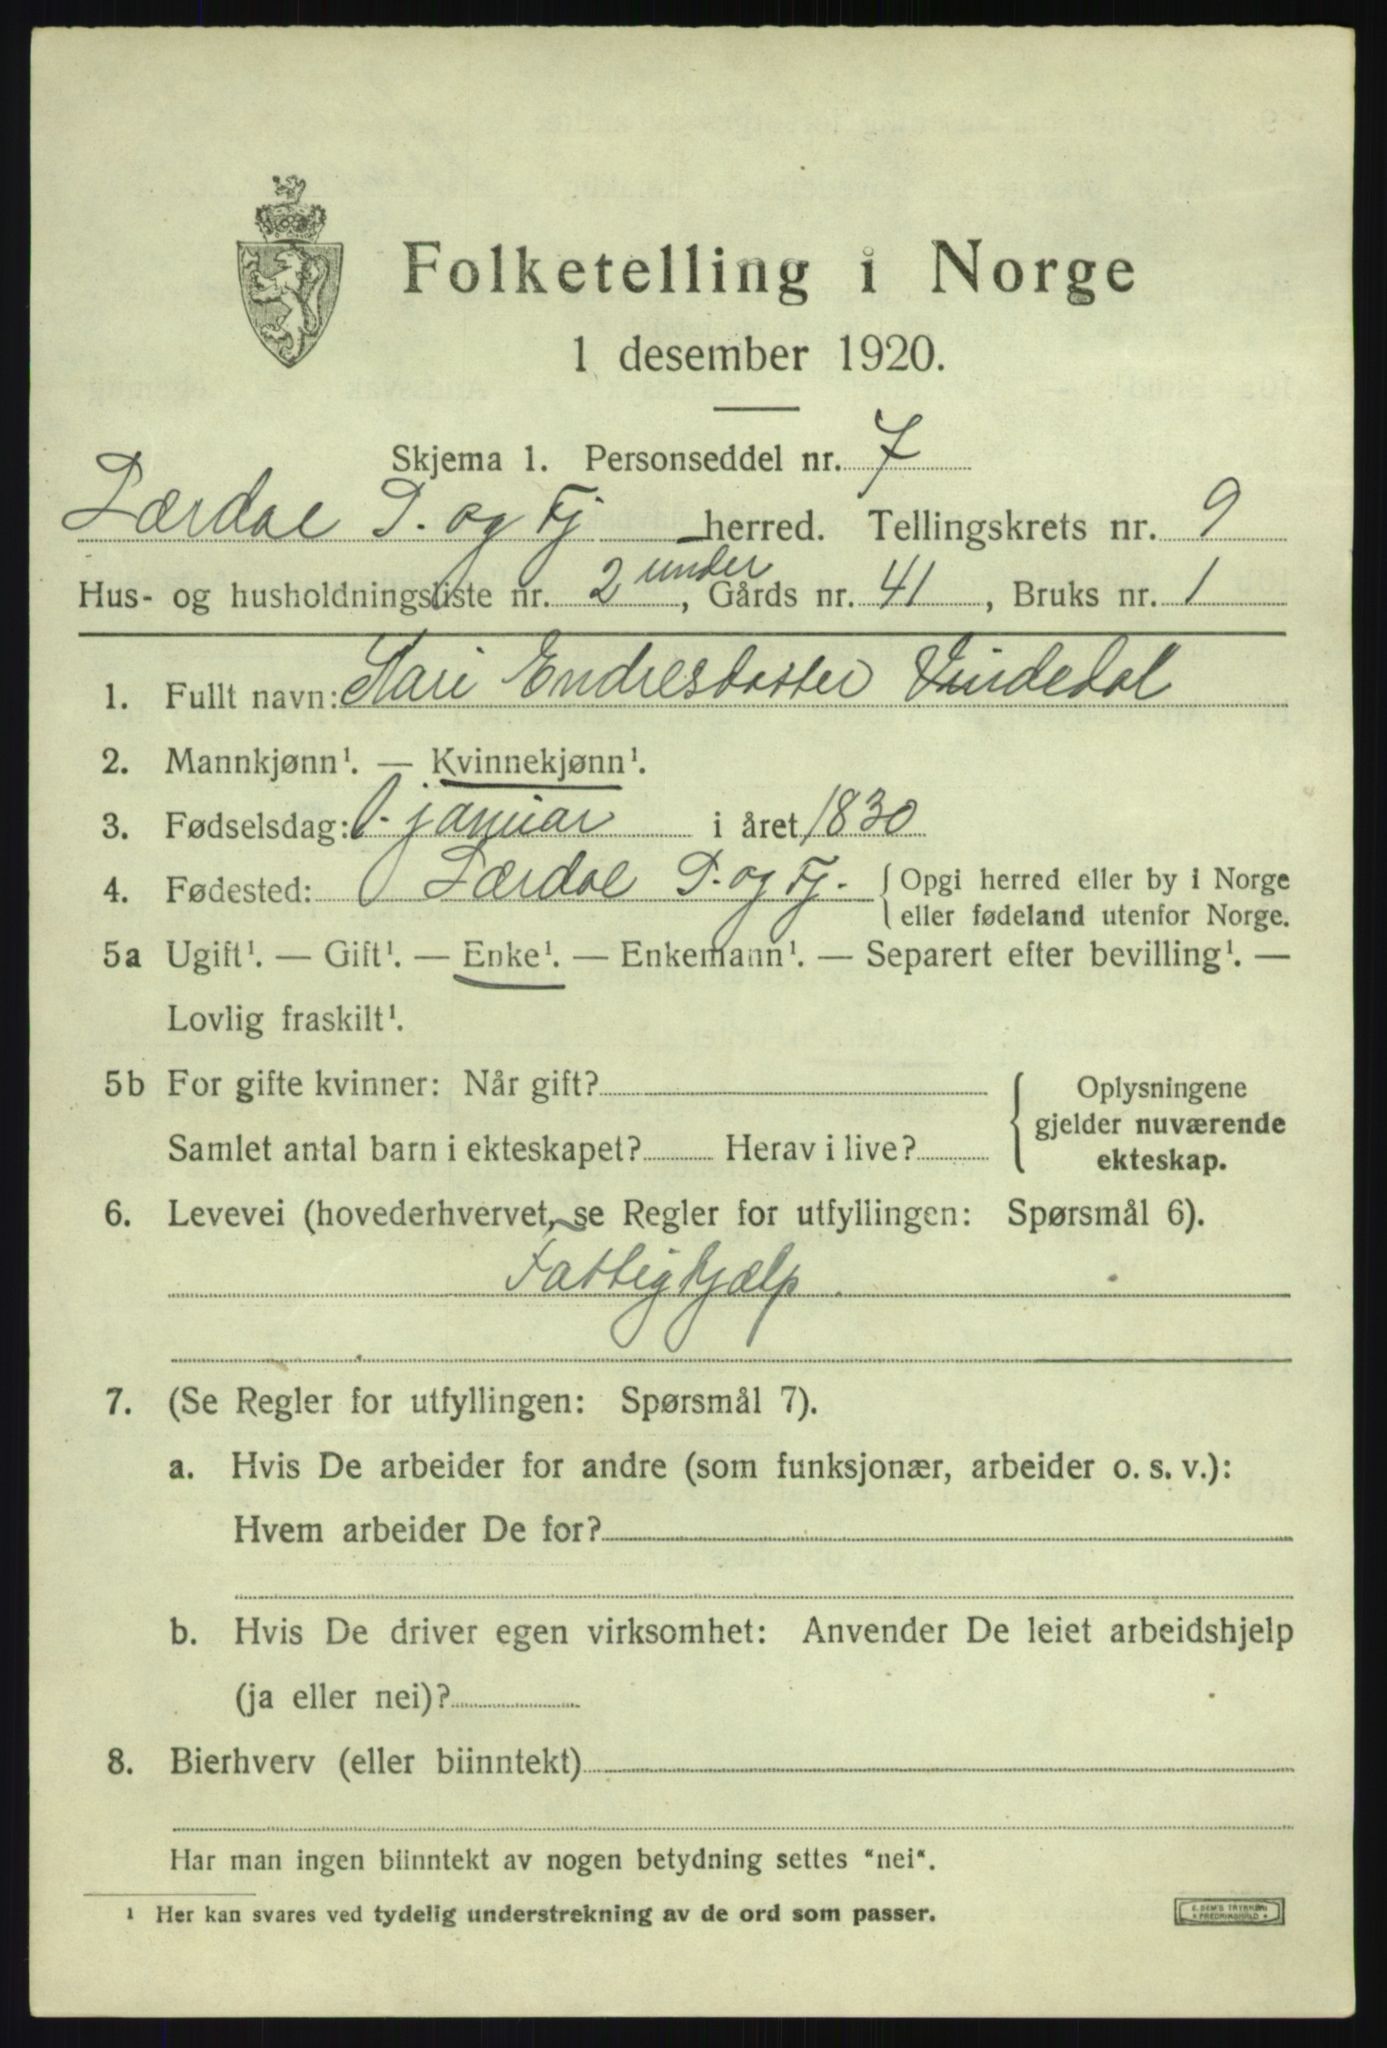 Folketelling i Norge
1 desember 1920.
Skjema 1. Personseddel nr. 7
Lærdal P. og Fj herred. Tellingskrets nr. 9
Hus- og husholdningsliste nr. 2 under, Gårds nr. 41, Bruks nr. 1
1. Fullt navn: Kari Endresdatter Vindedal
2. Mannkjønn¹. — Kvinnekjønn¹.
3. Fødselsdag: 1. januar i året 1830
4. Fødested: Lærdal P. og Fj. { Opgi herred eller by i Norge
eller fødeland utenfor Norge.
5a Ugift¹. — Gift¹. — Enke¹. — Enkemann¹. — Separert efter bevilling¹. —
Lovlig fraskilt¹.
5b For gifte kvinner: Når gift?
Samlet antal barn i ekteskapet? Herav i live?
Oplysningene
gjelder nuværende
ekteskap.
6. Levevei (hovederhvervet, se Regler for utfyllingen: Spørsmål 6).
Fattighjælp.
7. (Se Regler for utfyllingen: Spørsmål 7).
a. Hvis De arbeider for andre (som funksjonær, arbeider o. s. v.):
Hvem arbeider De for?
b. Hvis De driver egen virksomhet: Anvender De leiet arbeidshjelp
(ja eller nei)?
8. Bierhverv (eller biinntekt)
Har man ingen biinntekt av nogen betydning settes "nei".
¹ Her kan svares ved tydelig understrekning av de ord som passer.
E. SEM'S TRYKKERI
FREDRIKSHALD